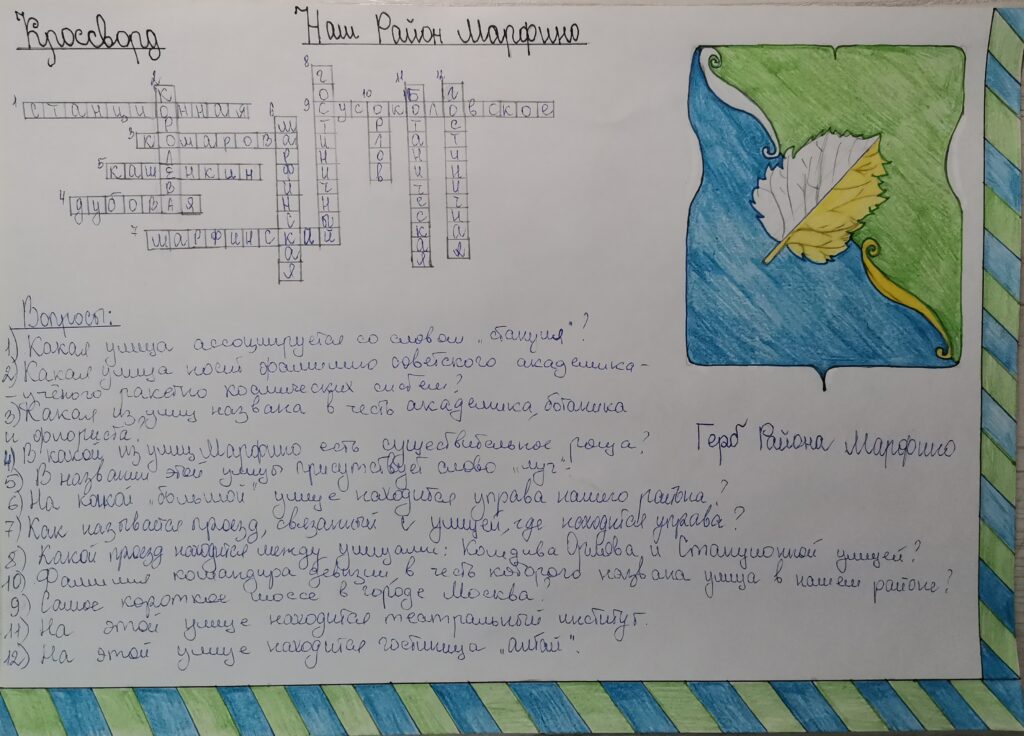 Кроссворд
Наш Район Марфино
1 станционная
2 королева
3 комарова
5 кашенкин
4 дубовая
6 марфинская
7 марфинский
8 гостиничный
9 сусоколовское
10 орлов
11 ботаническая
12 гостиничная
Вопросы:
1) Какая улица ассоциируется со словом „станция"?
2) Какая улица носит фамилию советского академика-
-учёного ракетно космических систем?
3) Какая из улиц названа в честь академика, ботаника
и флориста?
4) В какой из улиц Марфино есть существительное роща?
5) В названии этой улицы присутствует слово „луг"-
6) На какой „большой" улице находится управа нашего района?
7) Как называется проезд, связанный с улицей, где находится управа?
8) Какой проезд находится между улицами: Комдива Орлова и Станционной улицей?
10) Фамилия командира девизии в честь которого названа улица в нашем районе?
9) Самое короткое шоссе в городе Москва?
11) На этой улице находится театральный институт.
12) На этой улице находится гостиница „алтай".
Герб Района Марфино